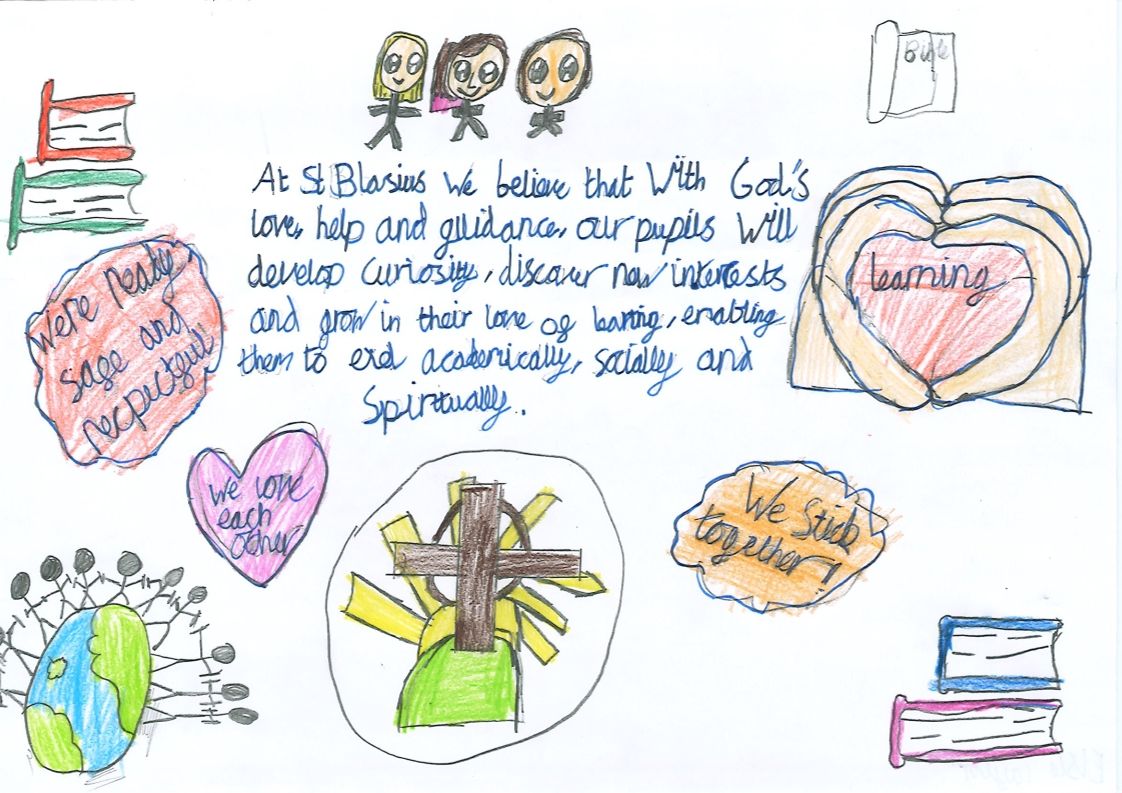 Bible
At St Blasius we believe that With God's
love, help and guidance, our pupils Will
develop curiosity, discover new interests
and grow in their love of learning, enabling
them to exel academically, socially and
Spiritually.
learning
We're ready
safe and
recpectful
We love
each
other
We Stick
together!